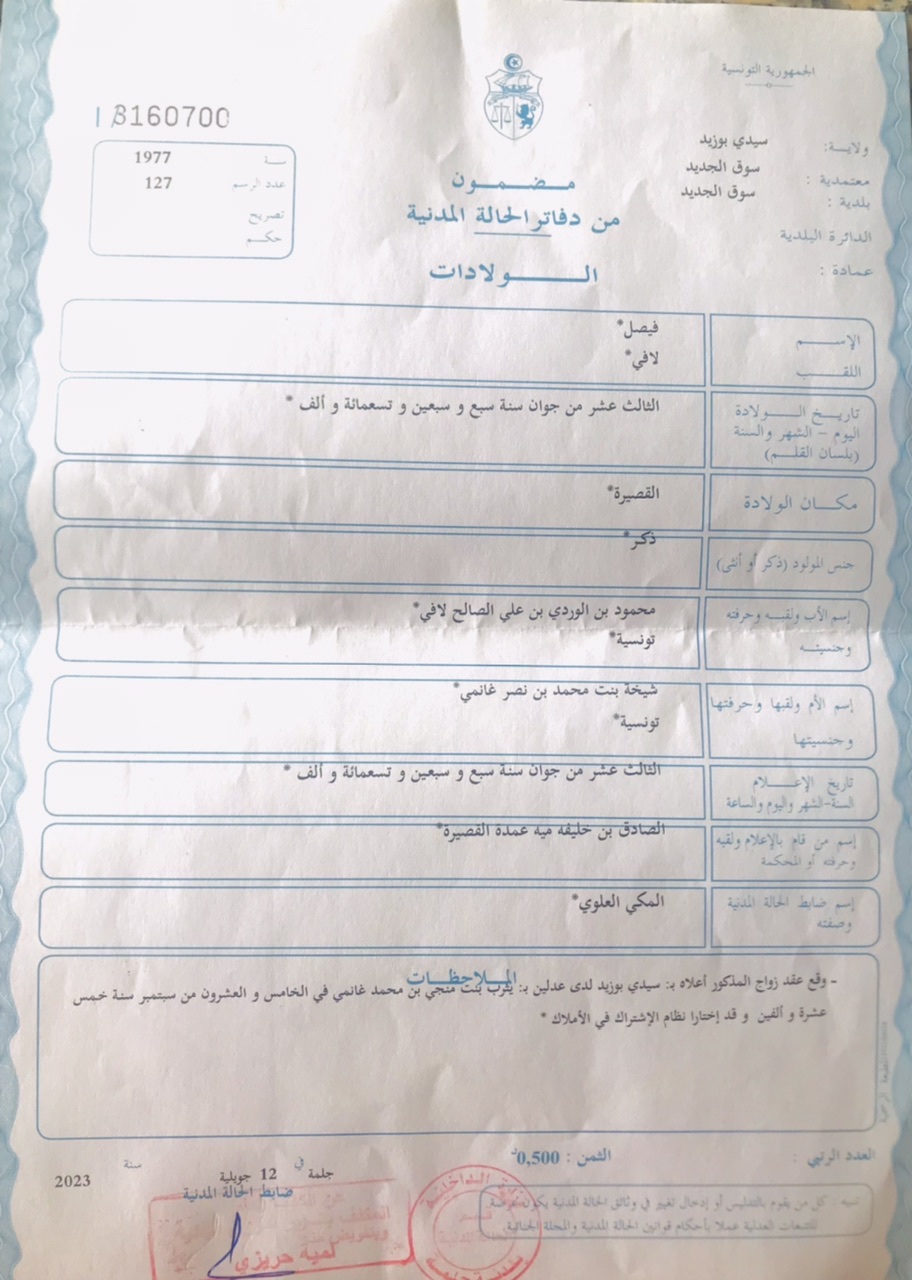 الجمهورية التونسية
ولاية: سيدي بوزيد
معتمدية : سوق الجديد
بلدية : سوق الجديد
الدائرة البلدية
عمادة :
3160700
سنة 1977
عدد الرسم 127
تصريح
حكم
مضمون
من دفاتر الحالة المدنية
الولادات
الإسم فيصل*
اللقب لافي*
تاريخ الولادة الثالث عشر من جوان سنة سبع و سبعين و تسعمائة و ألف *
اليوم - الشهر والسنة
(بلسان القلم)
مكان الولادة القصيرة*
جنس المولود (ذكر أو أنثى) ذكر*
إسم الأب ولقبه وحرفته محمود بن الوردي بن علي الصالح لافي*
وجنسيته تونسية*
إسم الأم ولقبها وحرفتها شيخة بنت محمد بن نصر غانمي*
وجنسيتها تونسية*
تاريخ الإعلام الثالث عشر من جوان سنة سبع و سبعين و تسعمائة و ألف *
السنة-الشهر واليوم والساعة
إسم من قام بالإعلام ولقبه الصادق بن خليفه ميه عمدة القصيرة*
وحرفته أو المحكمة
إسم ضابط الحالة المدنية المكي العلوي*
وصفته
الملاحظات
- وقع عقد زواج المذكور أعلاه بـ: سيدي بوزيد لدى عدلين بـ: يثرب بنت منجي بن محمد غانمي في الخامس و العشرون من سبتمبر سنة خمس
عشرة و ألفين و قد إختارا نظام الإشتراك في الأملاك *
العدد الرتبي :
الثمن : 0,500د
جلمة في 12 جويلية سنة 2023
ضابط الحالة المدنية
تنبيه : كل من يقوم بالتدليس أو إدخال تغيير في وثائق الحالة المدنية يكون عرضة
للتتبعات العدلية عملا بأحكام قوانين الحالة المدنية والمجلة الجنائية.
لمية حريزي